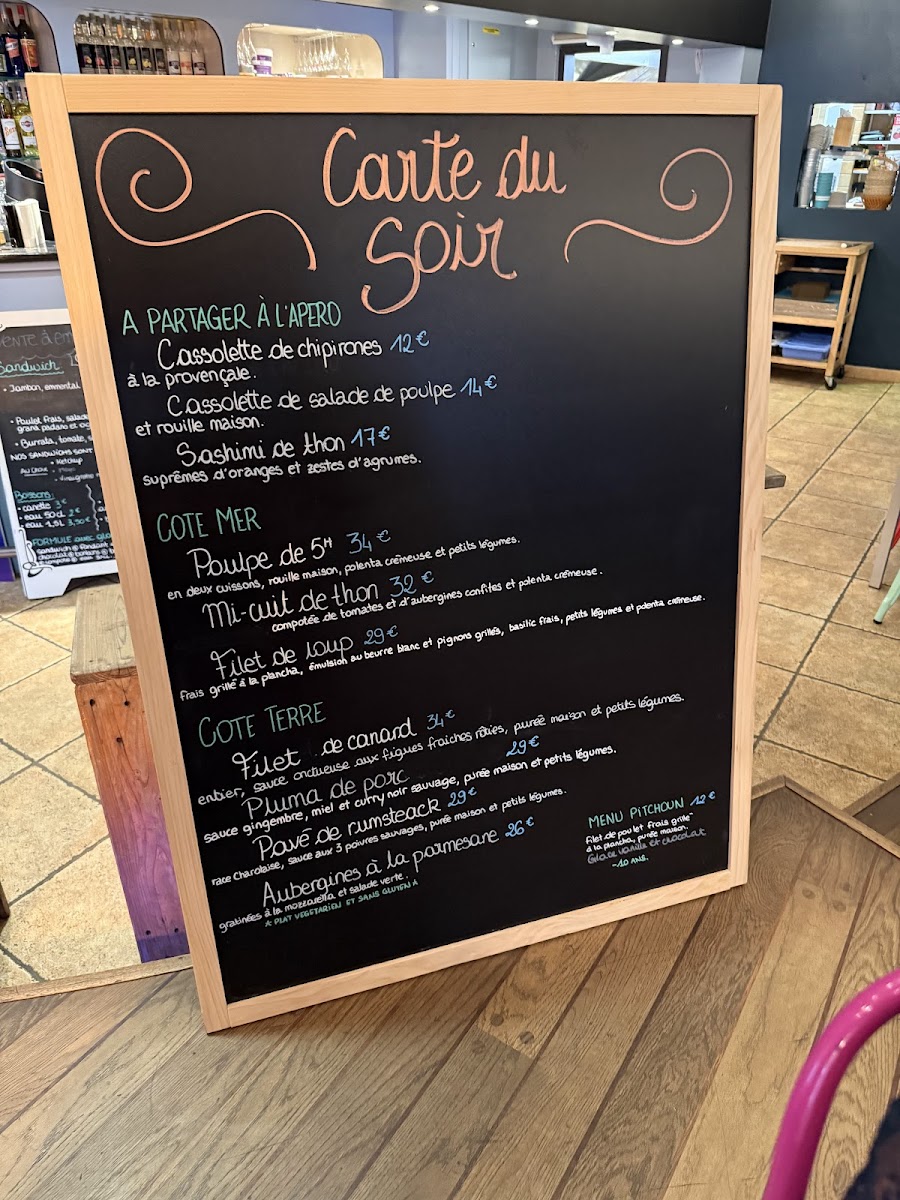 Carte du
Soir
A PARTAGER À L'APERO
Cassolette de chipirones 12€
à la provençale.
Cassolette de salade de poulpe 14€
et rouille maison.
Sashimi de thon 17€
suprêmes d'oranges et zestes d'agrumes.
COTE MER
Poulpe de 5H 34€
en deux cuissons, rouille maison, polenta crémeuse et petits légumes.
Mi-cuit de thon 32€
compotée de tomates et d'aubergines confites et polenta crémeuse.
Filet de loup 29€
frais grillé à la plancha, émulsion au beurre blanc et pignons grillés, basilic frais, petits légumes et polenta crémeuse.
COTE TERRE
Filet de canard 34€
entier, sauce onctueuse aux figues fraiches rôties, purée maison et petits légumes.
Pluma de porc 29€
sauce gingembre, miel et curry noir sauvage, purée maison et petits légumes.
Pavé de rumsteack 29€
race Charolaise, sauce aux 3 poivres sauvages, purée maison et petits légumes.
Aubergines à la parmesane 26€
gratinées à la mozzarella et salade verte.
* PLAT VEGETARIEN ET SANS GLUTEN *
MENU PITCHOUN 12€
filet de poulet frais grillé
à la plancha, purée maison.
Glace vanille et chocolat
-10 ANS.
Sandwich
• Jambon, emmental
• Poulet frais, salade
grana padano et
• Burrata, tomate,
NOS SANDWICHS SONT
AU CHOIX • Ketchup
• Mayo
• Vinaigrette
Boissons:
• canette 3€
• eau 50cl 2€
• eau 1,5L 3,50€
FORMULE avec
sandwich
chocolat